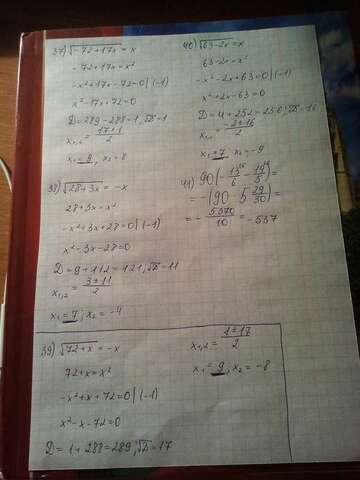 37) √-72+17x = x
-72+17x=x²
-x²+17x-72=0|(-1)
x²-17x+72=0
D=289-288=1, √D=1
x₁,₂ = (17±1)/2
x₁=9, x₂=8
38) √28+3x = -x
28+3x=x²
-x²+3x+28=0|(-1)
x²-3x-28=0
D=9+112=121, √D=11
x₁,₂ = (3±11)/2
x₁=7; x₂=-4
39) √72+x = -x
72+x=x²
-x²+x+72=0|(-1)
x²-x-72=0
D=1+288=289, √D=17
x₁,₂ = (1±17)/2
x₁=9, x₂=-8
40) √63-2x = x
63-2x=x²
-x²-2x+63=0|(-1)
x²+2x-63=0
D=4+252=256, √D=16
x₁,₂ = (-2±16)/2
x₁=7, x₂=-9
41) 90(-13/6 - 19/5)=
=-(90·5 29/30)=
=-5370/10=-537